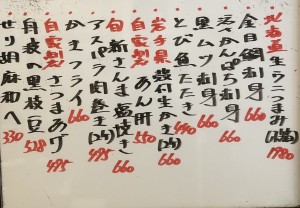 北海道生ウニつまみ(1舟) 1980
金目鯛刺身 660
活〆かんぱち刺身 660
黒ムツ刺身 660
とび魚たたき 440
岩手県殻付生かき(2ケ) 660
自家製あん肝 550
旬新さんま塩焼き 660
アスパラ肉巻き(2ケ) 495
かきフライ 660
自家製さつまあげ 495
丹波の黒枝豆 528
せり胡麻和へ 330